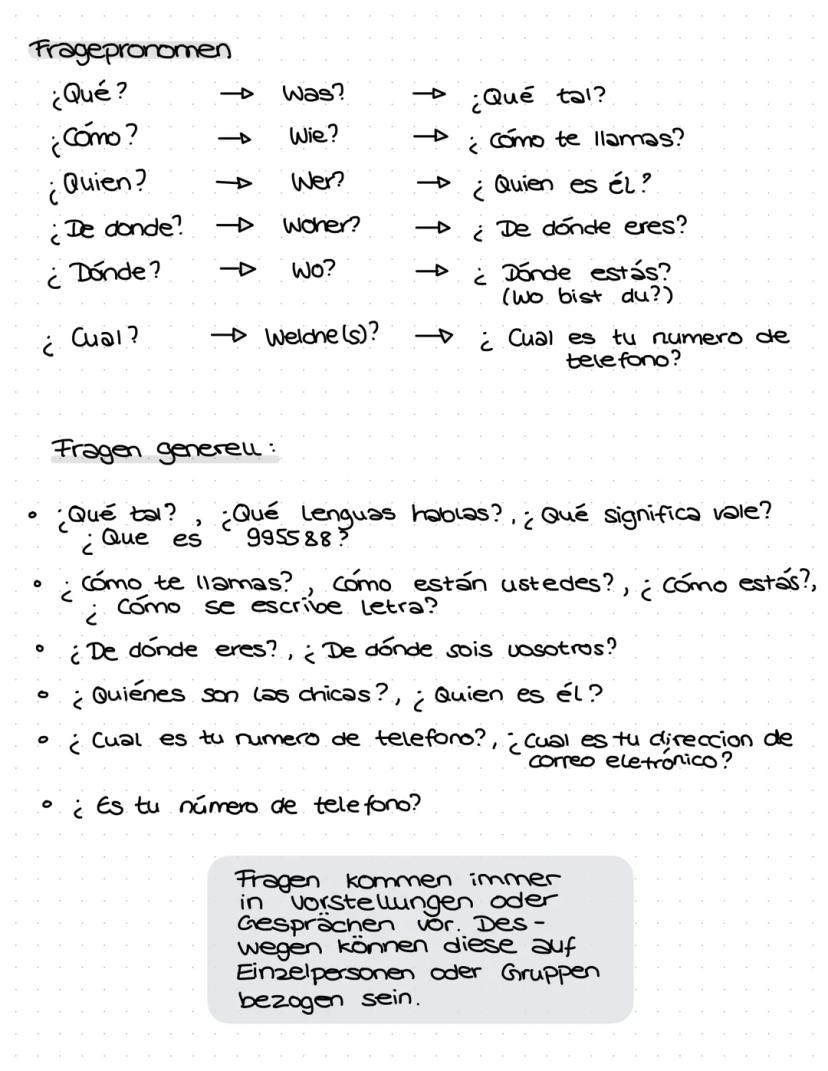 Fragepronomen
¿Qué? → Was? → ¿Qué tal?
¿Cómo? → Wie? → ¿Cómo te llamas?
¿Quien? → Wer? → ¿Quien es él?
¿De donde? → Woher? → ¿De dónde eres?
¿Dónde? → Wo? → ¿Dónde estás?
(Wo bist du?)
¿Cual? → Welche(s)? → ¿Cual es tu numero de
telefono?
Fragen generell:
• ¿Qué tal?, ¿Qué lenguas hablas?, ¿Qué significa vale?
¿Que es 995588?
• ¿Cómo te llamas?, Cómo están ustedes?, ¿Cómo estás?,
¿Cómo se escribe letra?
• ¿De dónde eres?, ¿De dónde sois vosotros?
• ¿Quiénes son las chicas?, ¿Quien es él?
• ¿Cual es tu numero de telefono?, ¿Cual es tu direccion de
correo eletrónico?
• ¿Es tu número de telefono?
Fragen kommen immer
in Vorstellungen oder
Gesprächen vor. Des-
wegen können diese auf
Einzelpersonen oder Gruppen
bezogen sein.